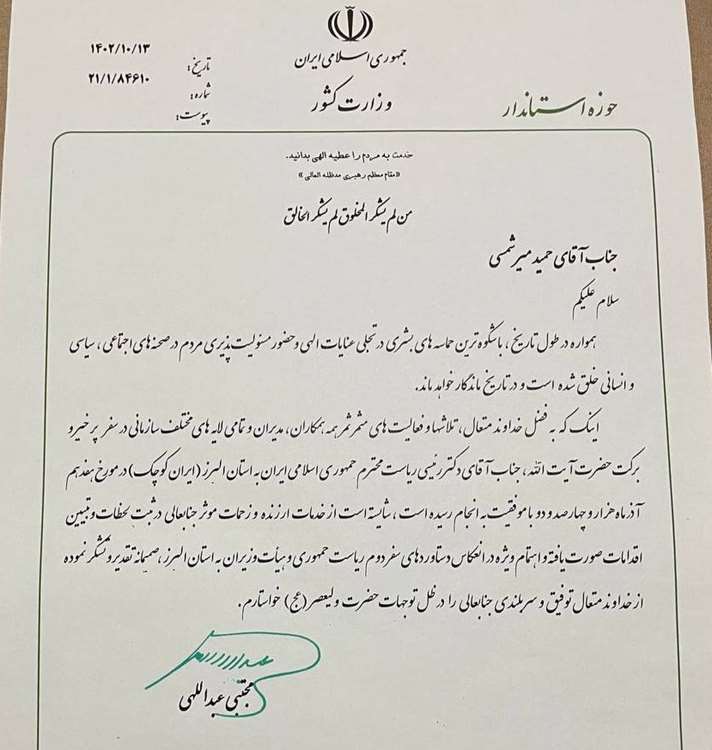 جمهوری اسلامی ایران
وزارت کشور
حوزه استاندار
تاریخ: ۱۴۰۲/۱۰/۱۳
شماره: ۲۱/۱/۸۴۶۱۰
پیوست:
خدمت به مردم را عطیه الهی بدانید.
«مقام معظم رهبری مدظله العالی»
من لم یشکر المخلوق لم یشکر الخالق
جناب آقای حمید میرشمسی
سلام علیکم
همواره در طول تاریخ، باشکوه ترین حماسه های بشری در تجلی عنایات الهی و حضور مسئولیت پذیری مردم در صحنه های اجتماعی، سیاسی
و انسانی خلق شده است و در تاریخ ماندگار خواهد ماند.
اینک که به فضل خداوند متعال، تلاشها و فعالیت های مثمر ثمر همه همکاران، مدیران و تمامی لایه های مختلف سازمانی در سفر پر خیر و
برکت حضرت آیت الله، جناب آقای دکتر رئیسی ریاست محترم جمهوری اسلامی ایران به استان البرز (ایران کوچک) در مورخ هفدهم
آذر ماه هزار و چهارصد و دو با موفقیت به انجام رسیده است، شایسته است از خدمات ارزنده و زحمات موثر جنابعالی در ثبت لحظات و تبیین
اقدامات صورت یافته و اهتمام ویژه در انعکاس دستاوردهای سفر دوم ریاست جمهوری و هیأت وزیران به استان البرز، صمیمانه تقدیر و تشکر نموده
از خداوند متعال توفیق و سربلندی جنابعالی را در ظل توجهات حضرت ولیعصر (عج) خواستارم.
مجتبی عبداللهی